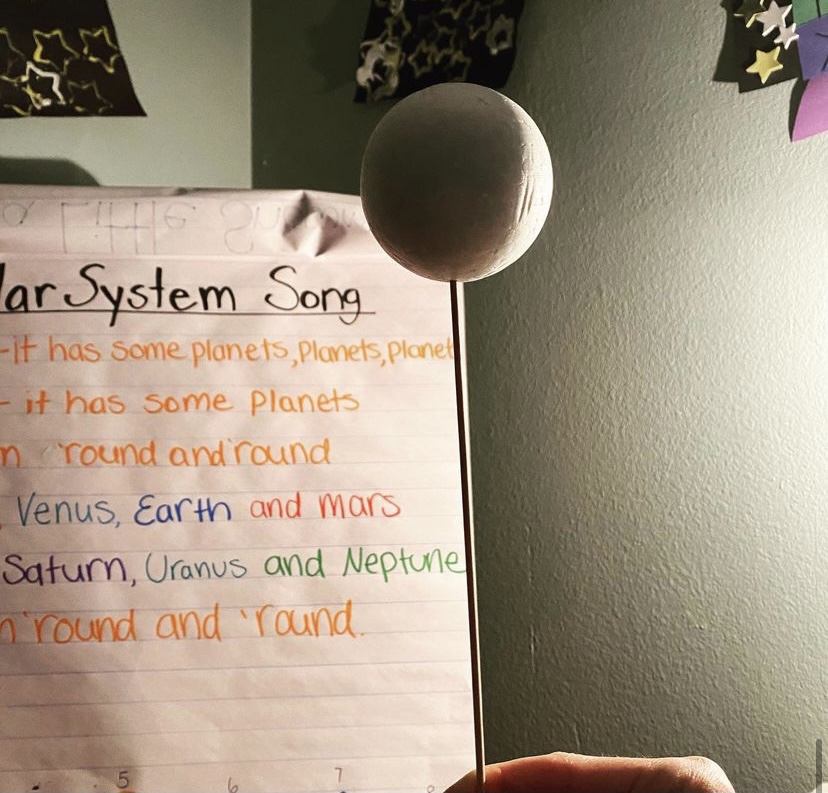 a Little Su
lar System Song
-it has some planets, Planets, planet
- it has some Planets
n 'round and 'round
, Venus, Earth and mars
Saturn, Uranus and Neptune
n 'round and 'round.
5 6 7 8